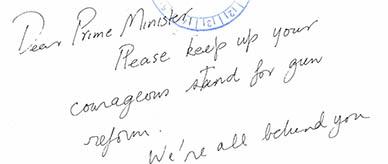 Dear Prime Minister
Please keep up your
courageous stand for gun
reform.
We're all behind you